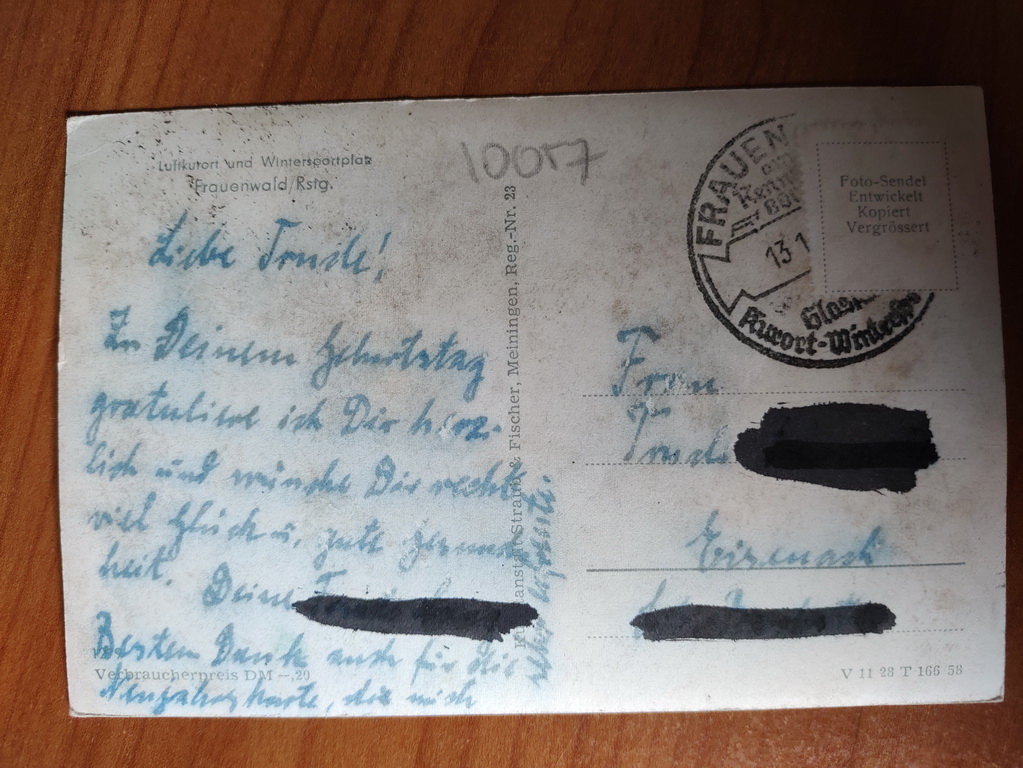 Luftkurort und Wintersportplatz
Frauenwald/Rstg.
10057
Liebe Trude!
Zu Deinem Geburtstag
gratuliere ich Dir herz-
lich und wünsche Dir recht
viel Glück u. gute Gesund-
heit.
Deine
Besten Dank auch für die
Neujahrskarte, die mich
sehr erfreute.
Verbraucherpreis DM -,20
Straub & Fischer, Meiningen, Reg.-Nr. 23
FRAUEN
13.1
Glas
Kurort-Winter
Foto-Sendel
Entwickelt
Kopiert
Vergrössert
Frau
Trude
Eisenach
V 11 28 T 166 58